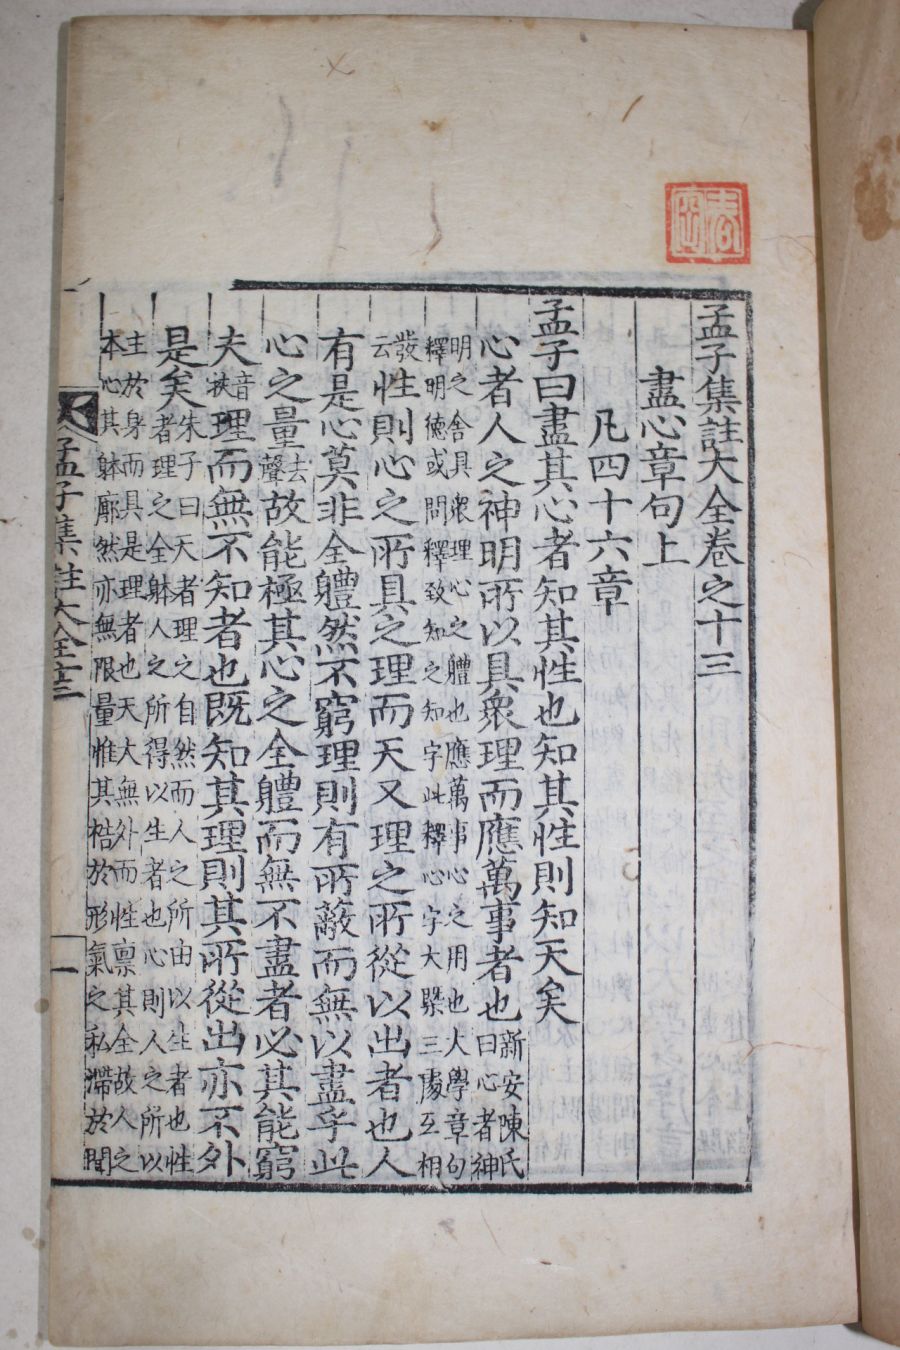 孟子集註大全卷之十三
盡心章句上
凡四十六章
孟子曰盡其心者知其性也知其性則知天矣
心者人之神明所以具衆理而應萬事者也新安陳氏曰心者神
明之舍具衆理心之體也應萬事心之用也大學章句
釋明德或問釋致知之知字此釋心字大槩三處互相
發云性則心之所具之理而天又理之所從以出者也人
有是心莫非全體然不窮理則有所蔽而無以盡乎此
心之量去聲故能極其心之全體而無不盡者必其能窮
夫音扶理而無不知者也旣知其理則其所從出亦不外
是矣朱子曰天者理之自然而人之所由以生者也性者理之全躰人之所得以生者也心則人之所以
主於身而具是理者也天大無外而性禀其全故人之
本心其躰廓然亦無限量惟其梏於形氣之私滯於聞
孟子集註大全十三
一